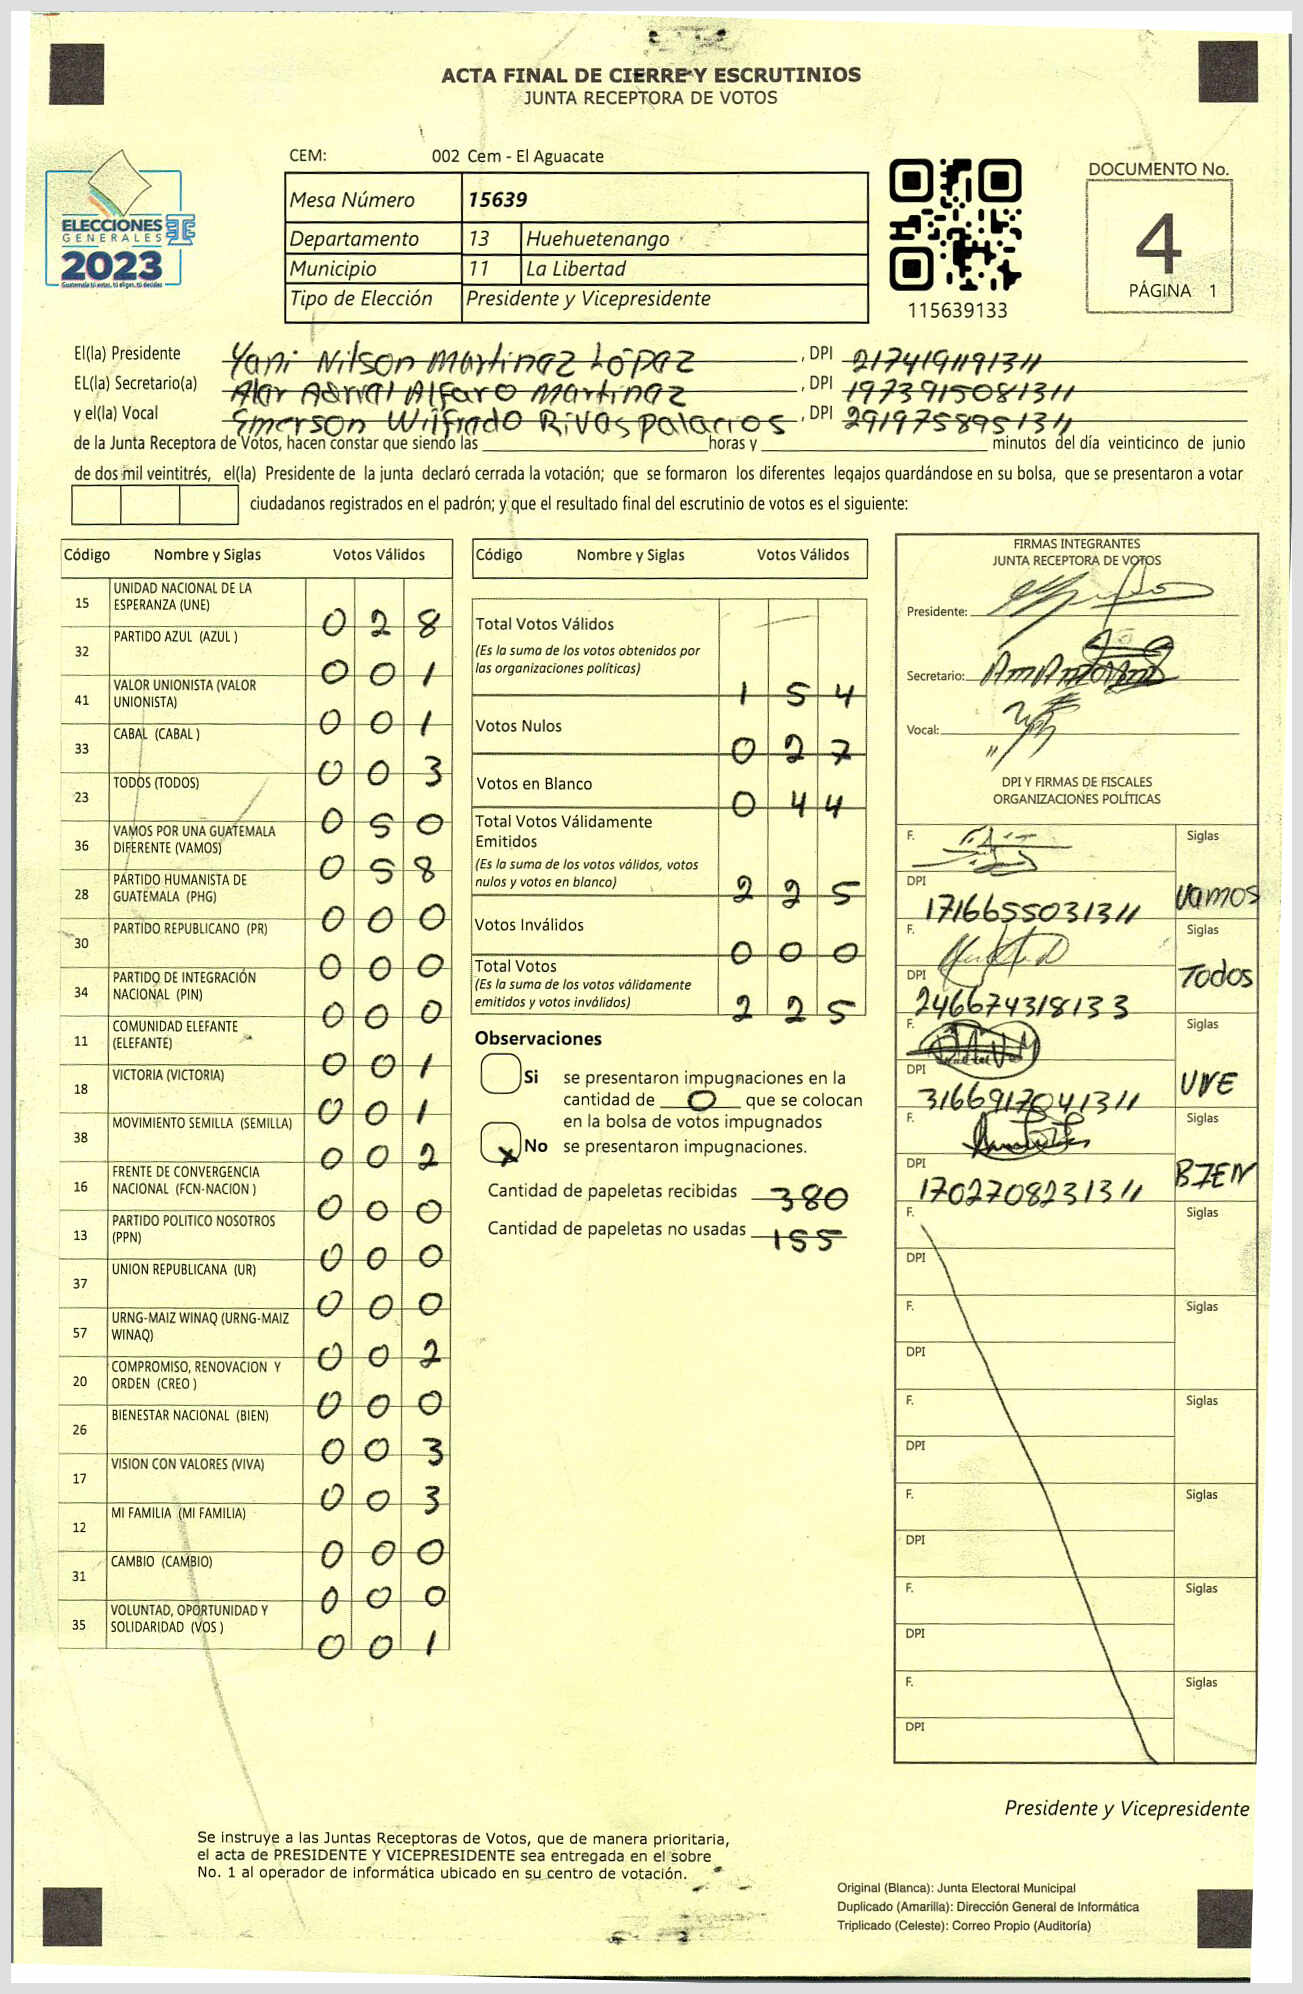 ACTA FINAL DE CIERRE Y ESCRUTINIOS
JUNTA RECEPTORA DE VOTOS
CEM: 002 Cem - El Aguacate
ELECCIONES
GENERALES
2023
Guatemala tú estas, tú eliges, tú decides
Mesa Número 15639
Departamento 13 Huehuetenango
Municipio 11 La Libertad
Tipo de Elección Presidente y Vicepresidente
115639133
DOCUMENTO No.
4
PÁGINA 1
El(la) Presidente Yani Nilson Martinez López, DPI
EL(la) Secretario(a) Alfaro Martinez, DPI 1973915081311
y el(la) Vocal Emerson Wilfrado Rivas Palacios, DPI
de la Junta Receptora de Votos, hacen constar que siendo las horas y minutos del día veinticinco de junio
de dos mil veintitrés, el(la) Presidente de la junta declaró cerrada la votación; que se formaron los diferentes legajos guardándose en su bolsa, que se presentaron a votar
ciudadanos registrados en el padrón; y que el resultado final del escrutinio de votos es el siguiente:
Código Nombre y Siglas Votos Válidos
15 UNIDAD NACIONAL DE LA
ESPERANZA (UNE) 0 2 8
32 PARTIDO AZUL (AZUL ) 0 0 1
41 VALOR UNIONISTA (VALOR
UNIONISTA) 0 0 1
33 CABAL (CABAL ) 0 0 3
23 TODOS (TODOS) 0 5 0
36 VAMOS POR UNA GUATEMALA
DIFERENTE (VAMOS) 0 5 8
28 PARTIDO HUMANISTA DE
GUATEMALA (PHG) 0 0 0
30 PARTIDO REPUBLICANO (PR) 0 0 0
34 PARTIDO DE INTEGRACIÓN
NACIONAL (PIN) 0 0 0
11 COMUNIDAD ELEFANTE
(ELEFANTE) 0 0 1
18 VICTORIA (VICTORIA) 0 0 1
38 MOVIMIENTO SEMILLA (SEMILLA) 0 0 2
16 FRENTE DE CONVERGENCIA
NACIONAL (FCN-NACION ) 0 0 0
13 PARTIDO POLITICO NOSOTROS
(PPN) 0 0 0
37 UNION REPUBLICANA (UR) 0 0 0
57 URNG-MAIZ WINAQ (URNG-MAIZ
WINAQ) 0 0 2
20 COMPROMISO, RENOVACION Y
ORDEN (CREO ) 0 0 0
26 BIENESTAR NACIONAL (BIEN) 0 0 3
17 VISION CON VALORES (VIVA) 0 0 3
12 MI FAMILIA (MI FAMILIA) 0 0 0
31 CAMBIO (CAMBIO) 0 0 0
35 VOLUNTAD, OPORTUNIDAD Y
SOLIDARIDAD (VOS ) 0 0 1
Código Nombre y Siglas Votos Válidos
Total Votos Válidos
(Es la suma de los votos obtenidos por
las organizaciones políticas) 1 5 4
Votos Nulos 0 2 7
Votos en Blanco 0 4 4
Total Votos Válidamente
Emitidos
(Es la suma de los votos válidos, votos
nulos y votos en blanco) 2 2 5
Votos Inválidos 0 0 0
Total Votos
(Es la suma de los votos válidamente
emitidos y votos inválidos) 2 2 5
Observaciones
Si se presentaron impugnaciones en la
cantidad de 0 que se colocan
en la bolsa de votos impugnados
x No se presentaron impugnaciones.
Cantidad de papeletas recibidas 380
Cantidad de papeletas no usadas 155
FIRMAS INTEGRANTES
JUNTA RECEPTORA DE VOTOS
Presidente:
Secretario:
Vocal:
DPI Y FIRMAS DE FISCALES
ORGANIZACIONES POLÍTICAS
F. Siglas
DPI 1716655031311 Vamos
F. Siglas
DPI 246674318133 Todos
F. Siglas
DPI 3166917041311 UNE
F. Siglas
DPI 1702708231311 BIEN
F. Siglas
DPI
F. Siglas
DPI
F. Siglas
DPI
F. Siglas
DPI
F. Siglas
DPI
F. Siglas
DPI
Presidente y Vicepresidente
Se instruye a las Juntas Receptoras de Votos, que de manera prioritaria,
el acta de PRESIDENTE Y VICEPRESIDENTE sea entregada en el sobre
No. 1 al operador de informática ubicado en su centro de votación.
Original (Blanca): Junta Electoral Municipal
Duplicado (Amarilla): Dirección General de Informática
Triplicado (Celeste): Correo Propio (Auditoría)